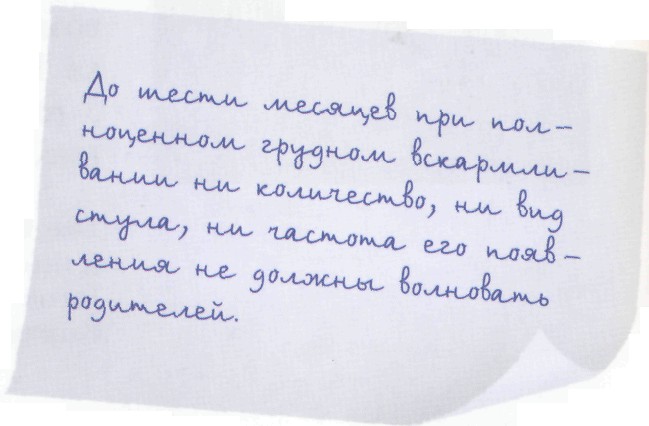 До шести месяцев при пол-
ноценном грудном вскармли-
вании ни количество, ни вид
стула, ни частота его появ-
ления не должны волновать
родителей.